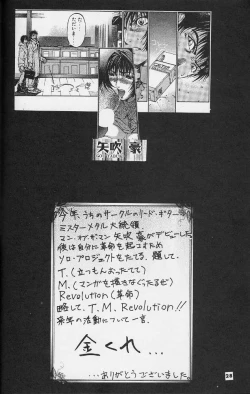 ただいまー
矢吹 豪
今年、うちのサークルのリード・ギター
ミスターメタル大統領
マン・オブ・ザ・マン 矢吹 豪がデビューした
僕は自分に革命を起こすため
ソロ・プロジェクトをたてる、題して
T.(立つもんおったてて)
M.(マンガを描きなぐったるぜ)
Revolution(革命)
略して、T.M.Revolution!!
来年の活動について一言。
金くれ...
...ありがとうございました。